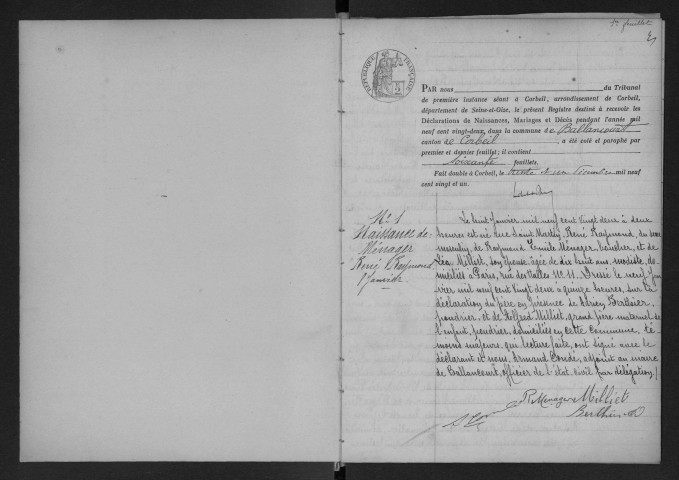 1er feuillet
RÉPUBLIQUE FRANÇAISE
PAR nous du Tribunal
de première instance séant à Corbeil, arrondissement de Corbeil,
département de Seine-et-Oise, le présent Registre destiné à recevoir les
Déclarations de Naissances, Mariages et Décès pendant l'année mil
neuf cent vingt-deux, dans la commune de Ballancourt
canton de Corbeil, a été coté et paraphé par
premier et dernier feuillet; il contient
soixante feuillets.
Fait double à Corbeil, le trente et un Décembre mil neuf
cent vingt et un.
No 1
Naissance de
Ménager
René Raymond
8 Janvier
Le huit Janvier mil neuf cent vingt deux à deux
heures est né rue Saint Martin, René Raymond, du sexe
masculin, de Raymond Emile Ménager, boucher, et de
Léa Milliet, son épouse âgée de dix huit ans, modiste, do-
miciliés à Paris, rue des Halles No 11. Dressé le neuf Jan-
vier mil neuf cent vingt deux à quinze heures, sur la
déclaration du père en présence de Adrien Berthier,
poudrier, et de Alfred Milliet, grand père maternel de
l'enfant, poudrier, domiciliés en cette commune, té-
moins majeurs, qui lecture faite, ont signé avec le
déclarant et nous, Armand Condé, adjoint au maire
de Ballancourt, officier de l'état civil par délégation./
R Ménager Milliet